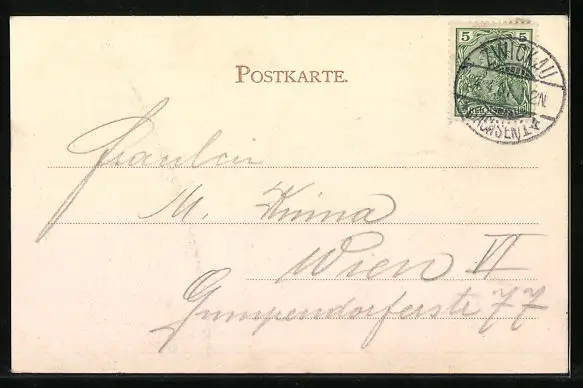 POSTKARTE.
5 5
ZWICKAU
(SACHSEN) 1
Fräulein
M.
Wien VI
Gumpendorferstr 77